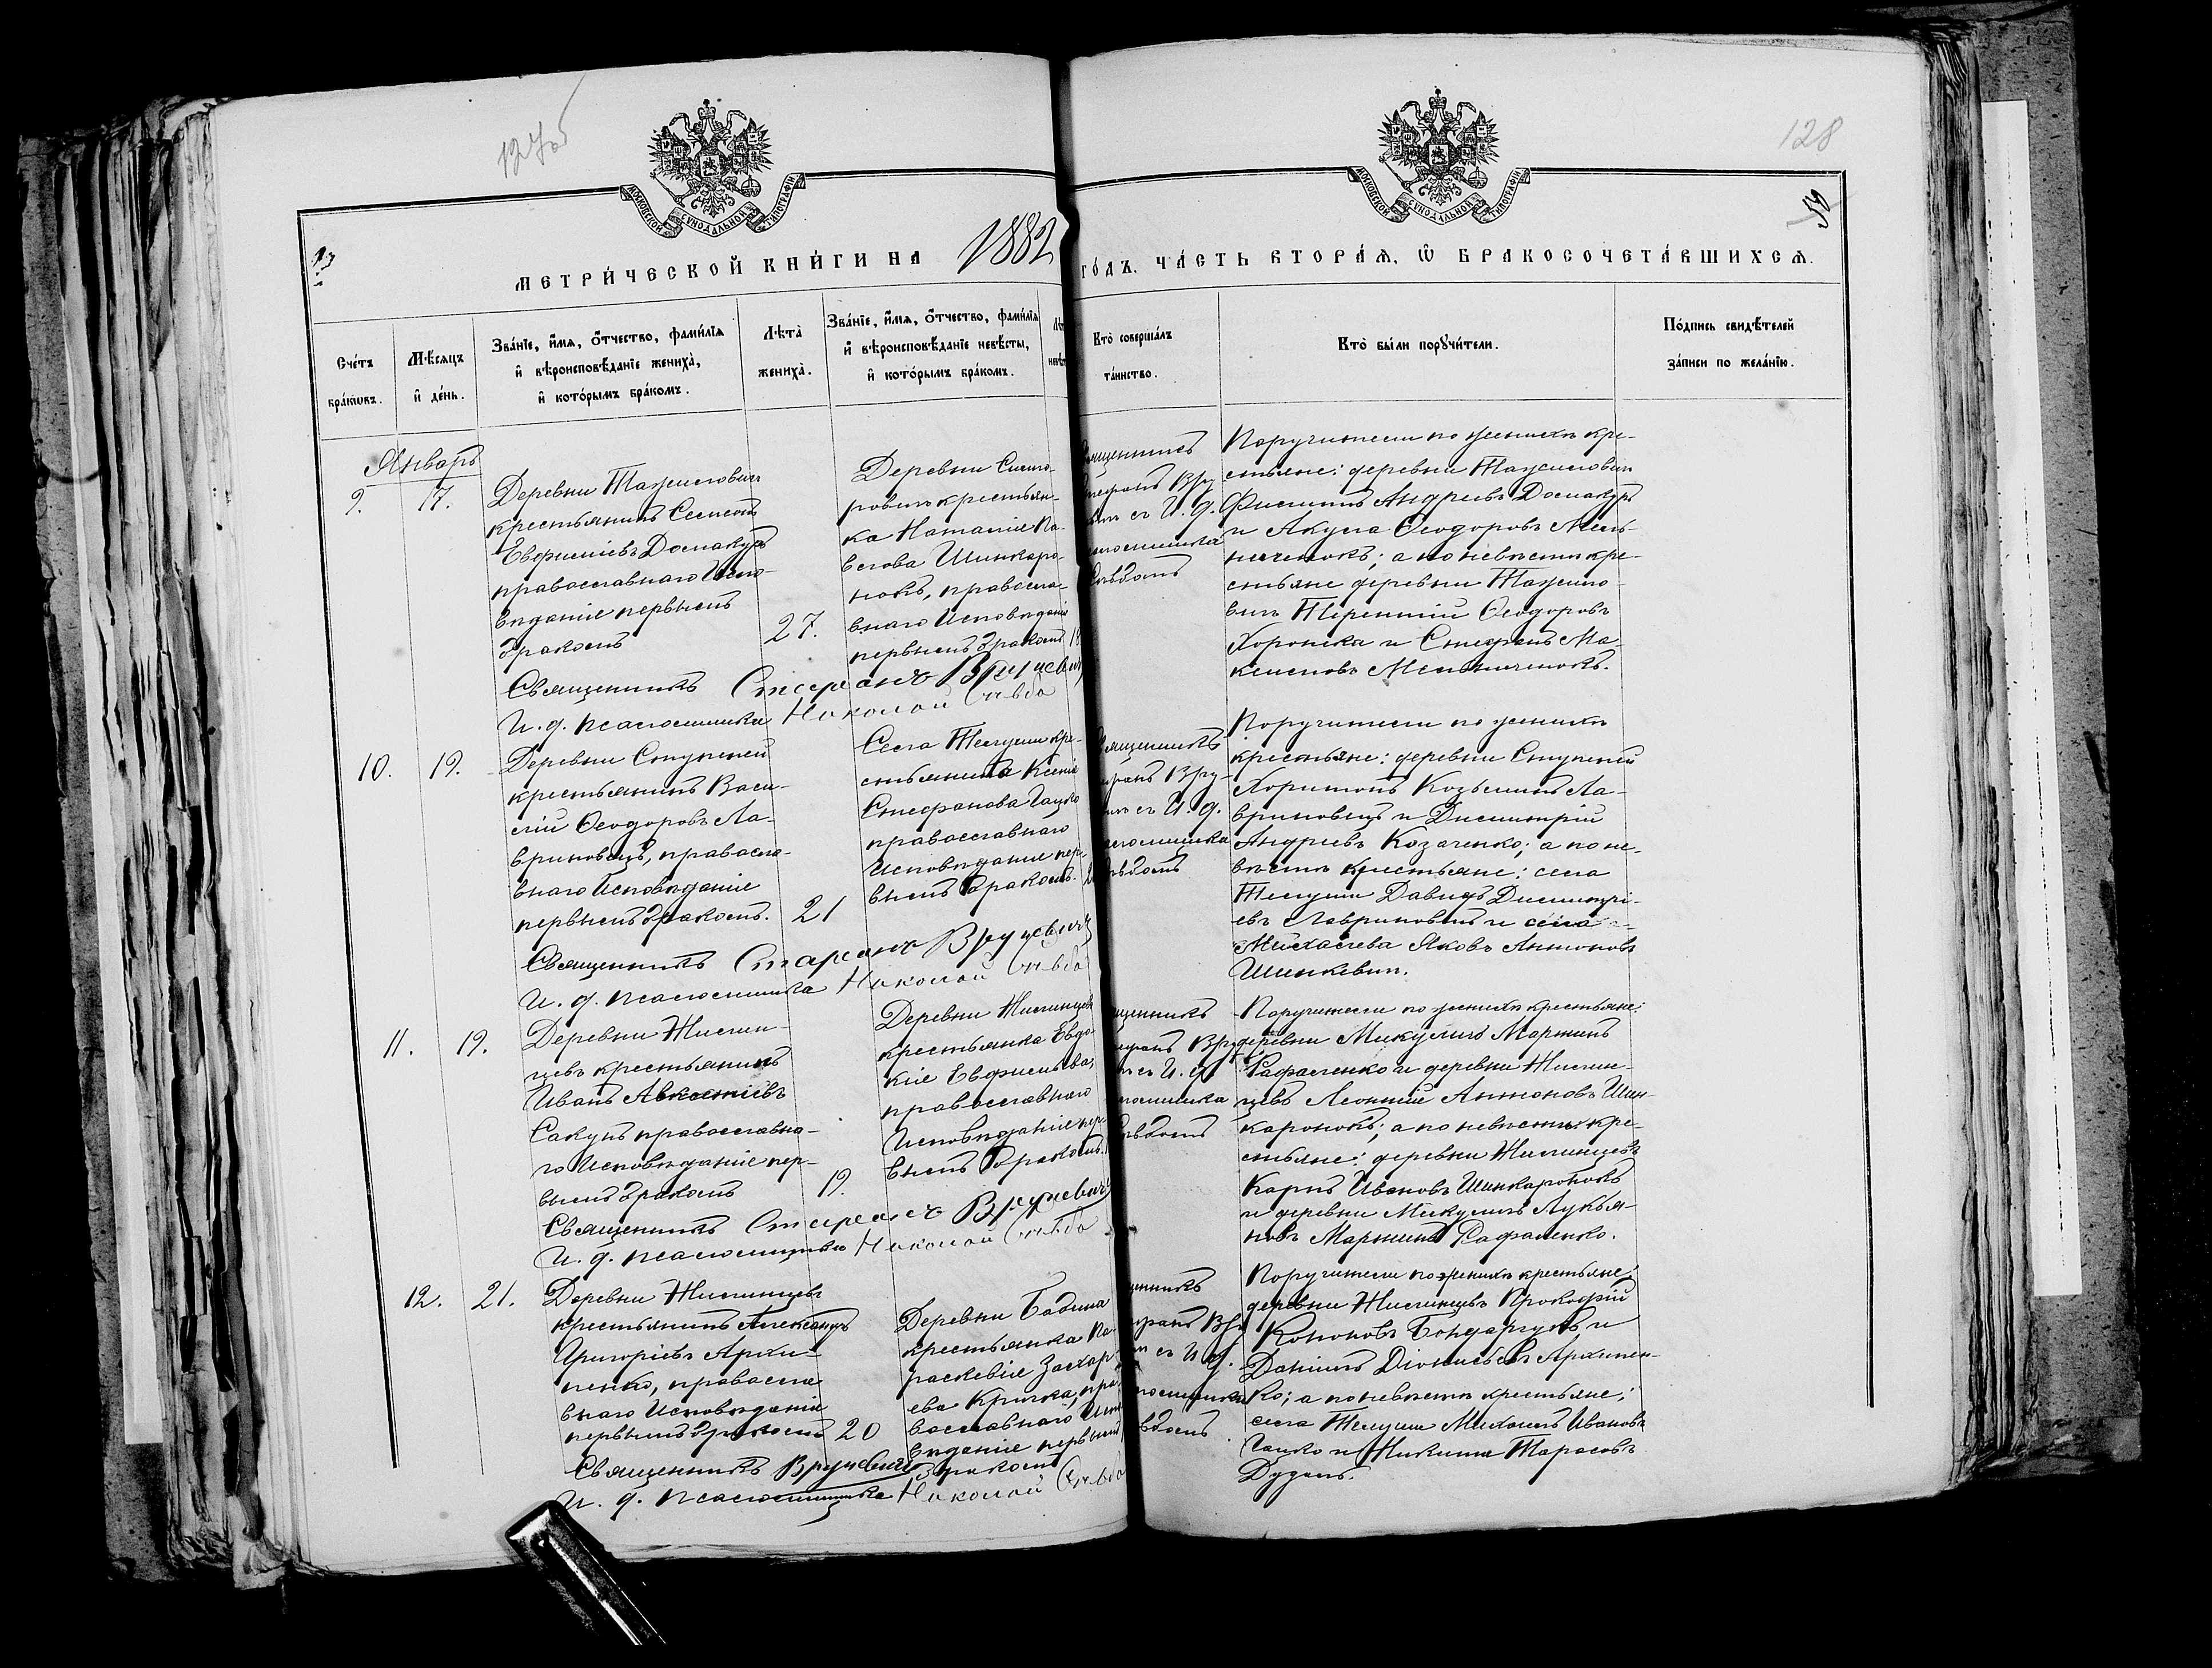 127об
128
59
МОСКОВСКОЙ СУНОДАЛЬНОЙ ТИПОГРАФІИ
МОСКОВСКОЙ СУНОДАЛЬНОЙ ТИПОГРАФІИ
МЕТРИ́ЧЕСКОЙ КНИ́ГИ НА 1882 ГО́ДЪ. ЧА́СТЬ ВТОРА́Я, Ѡ БРАКОСОЧЕТА́ВШИХСЯ.
Сче́тъ
бра́кѡвъ.
Мѣ́сяцъ
и҆ де́нь.
Зва́нїе, и҆́мя, о҆́тчество, фами́лїя
и҆ вѣроисповѣ́данїе жениха̀,
и҆ кото́рымъ бра́комъ.
Лѣта̀
жениха̀.
Зва́нїе, и҆́мя, о҆́тчество, фами́лїя
и҆ вѣроисповѣ́данїе невѣ́сты,
и҆ кото́рымъ бра́комъ.
Кто̀ соверша́лъ
та́инство.
Кто̀ бы́ли порꙋчи́тели.
По́дпись свидѣ́телей
за́писи по жела́нїю.
Январь
9.
17.
Деревни Тажиловичъ
крестьянинъ
Евфиміевъ Домакуръ
православнаго Испо-
вѣданіе первымъ
бракомъ
27.
ровичъ крестьян-
ка Наталіе Па-
влова Шинкаро-
нокъ, правосла-
внаго Исповѣданія
первымъ бракомъ
Священникъ Стефанъ Вручевичъ
И. д. псаломщика Николай
Поручители по женихѣ кре-
стьяне: деревни Тажиловичъ
Филиппъ Андреевъ Домакуръ
и Акула Ѳеодоровъ Мель-
ниченокъ; а по невѣстѣ кре-
стьяне деревни Тажило-
вичъ Терентій Ѳеодоровъ
и Стефанъ Ма-
ксимовъ Мельниченокъ.
10.
19.
Деревни Ступеней
крестьянинъ Васи-
лій Ѳеодоровъ Ла-
вриновецъ, правосла-
внаго Исповѣданіе
первымъ бракомъ.
21
Села Телуши кре-
стьянина Ксеніе
Стефанова Гацко
православнаго
Исповѣданіе пер-
вымъ бракомъ.
Священникъ Стефанъ Вручевичъ
И. д. псаломщика Николай
Поручители по женихѣ
крестьяне: деревни Ступеней
Харитонъ Козьминъ Ла-
вриновецъ и Димитрій
Андреевъ Козаченко; а по не-
вѣстѣ крестьяне: села
Телуши Давидъ Димитрі-
евъ Лавриновичъ и села
Михалева Яковъ Антоновъ
Шинкевич.
11.
19.
Деревни Жилин-
цевъ крестьянинъ
Иванъ Авксентіевъ
Сакунъ православна-
го Исповѣданіе пер-
вымъ бракомъ
19.
Деревни Жилинцевъ
крестьянка Евдо-
кіе Евфимьева,
православнаго
Исповѣданіе пер-
вымъ бракомъ.
Священникъ Стефанъ Вручевичъ
И. д. псаломщика Николай
Поручители по женихѣ крестьяне:
деревни Микуличъ Мартинъ
Рафаленко и деревни Жилин-
цевъ Леонтій Антоновъ Шин-
каронокъ; а по невѣстѣ кре-
стьяне: деревни Жилинцевъ
Карпъ Ивановъ Шинкаронокъ
и деревни Микуличъ Лукья-
новъ Мартинъ Рафаленко.
12.
21.
Деревни Жилинцевъ
крестьянинъ Александръ
Григоріевъ Архи-
пенко, правосла
внаго Исповѣданія
первымъ бракомъ
20
Деревни Бабина
крестьянка Па-
раскевіе Захар-
ева Кричка, пра-
вославнаго Испо
вѣданіе первымъ
бракомъ
Священникъ Вручевичъ
И. д. псаломщика Николай
Поручители по женихѣ крестьяне:
деревни Жилинцевъ Прокофій
Кононовъ Бондарчукъ и
Даніилъ Діонисьевъ Архипен-
ко; а по невѣстѣ крестьяне:
села Телуши Михаилъ Ивановъ
Гацко и Никита Тарасовъ
Дузель.